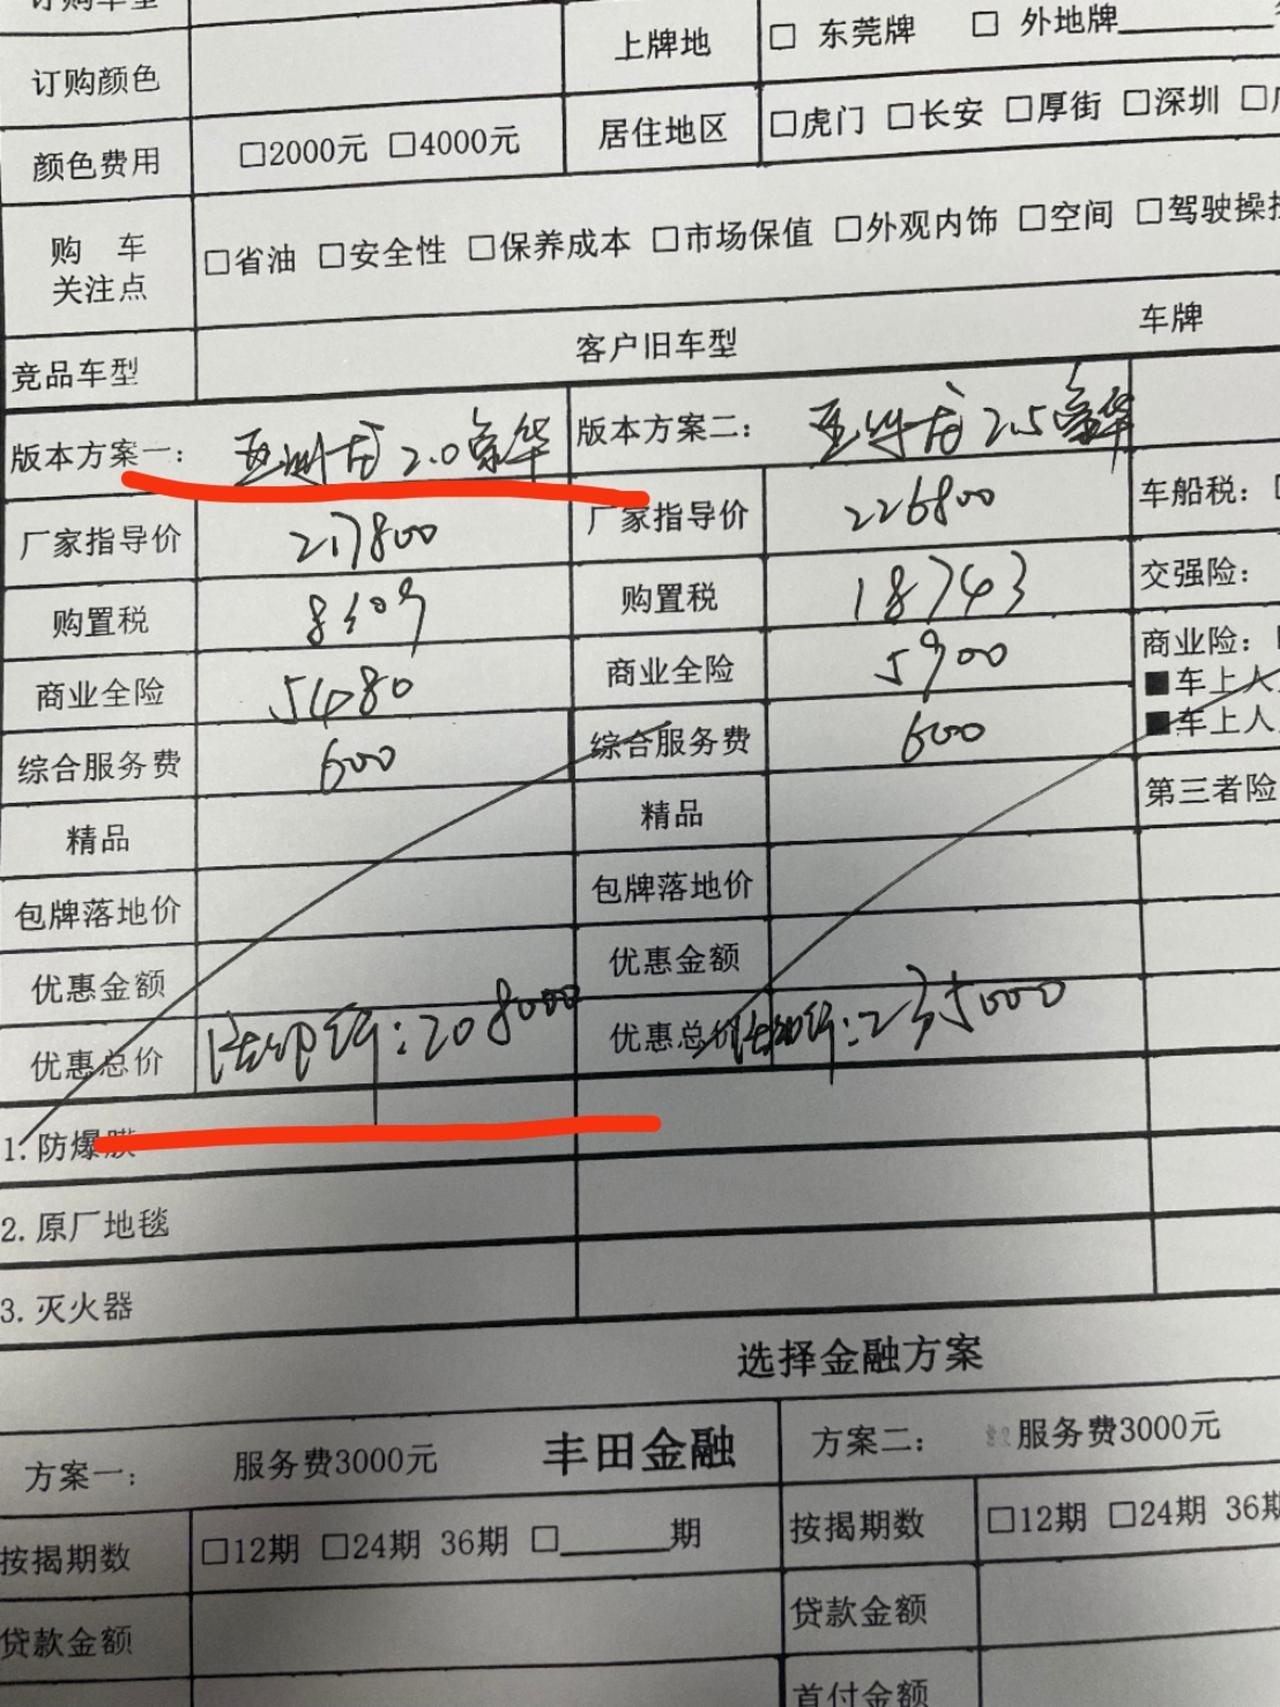 订购车型
订购颜色 上牌地 □ 东莞牌 □ 外地牌
颜色费用 □2000元 □4000元 居住地区 □虎门 □长安 □厚街 □深圳 □
购 车
关注点 □省油 □安全性 □保养成本 □市场保值 □外观内饰 □空间 □驾驶操控
竞品车型 客户旧车型 车牌
版本方案一: 亚洲龙2.0豪华 版本方案二: 亚洲龙2.5豪华
厂家指导价 217800 厂家指导价 226800 车船税: □
购置税 8509 购置税 18743 交强险:
商业全险 5480 商业全险 5900 商业险:
■车上人
综合服务费 600 综合服务费 600 ■车上人
精品 精品 第三者险
包牌落地价 包牌落地价
优惠金额 优惠金额
优惠总价 落地价:208000 优惠总价 落地价:235000
1.防爆膜
2.原厂地毯
3.灭火器
选择金融方案
方案一: 服务费3000元 丰田金融 方案二: 服务费3000元
按揭期数 □12期 □24期 36期 □______期 按揭期数 □12期 □24期 36期
贷款金额 贷款金额
首付金额